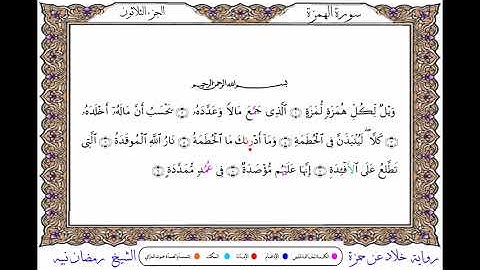 الجزء الثلاثون
سورة الهمزة
بسم الله الرحمن الرحيم
وَيْلٌ لِكُلِّ هُمَزَةٍ لُمَزَةٍ ۝ ٱلَّذِى جَمَّعَ مَالًا وَعَدَّدَهُۥ ۝ يَحْسَبُ أَنَّ مَالَهُۥٓ أَخْلَدَهُۥ
۝ كَلَّا ۖ لَيُنۢبَذَنَّ فِى ٱلْحُطَمَةِ ۝ وَمَآ أَدْرَىٰكَ مَا ٱلْحُطَمَةُ ۝ نَارُ ٱللَّهِ ٱلْمُوقَدَةُ ۝ ٱلَّتِى
تَطَّلِعُ عَلَى ٱلْأَفْـِٔدَةِ ۝ إِنَّهَا عَلَيْهُم مُّؤْصَدَةٌ ۝ فِى عُمُدٍ مُّمَدَّدَةٍۭ ۝
رواية خلاد عن حمزة
الشيخ رمضان نبيه